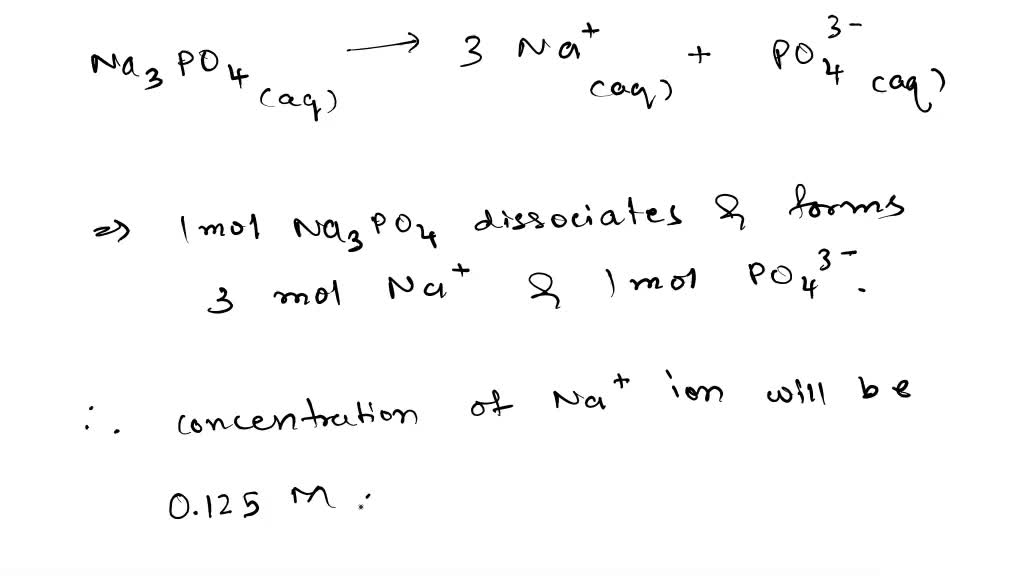 Na₃PO₄(aq) ⟶ 3 Na⁺(aq) + PO₄³⁻(aq)
⇒ 1 mol Na₃PO₄ dissociates & forms
3 mol Na⁺ & 1 mol PO₄³⁻.
∴ concentration of Na⁺ ion will be
0.125 M :